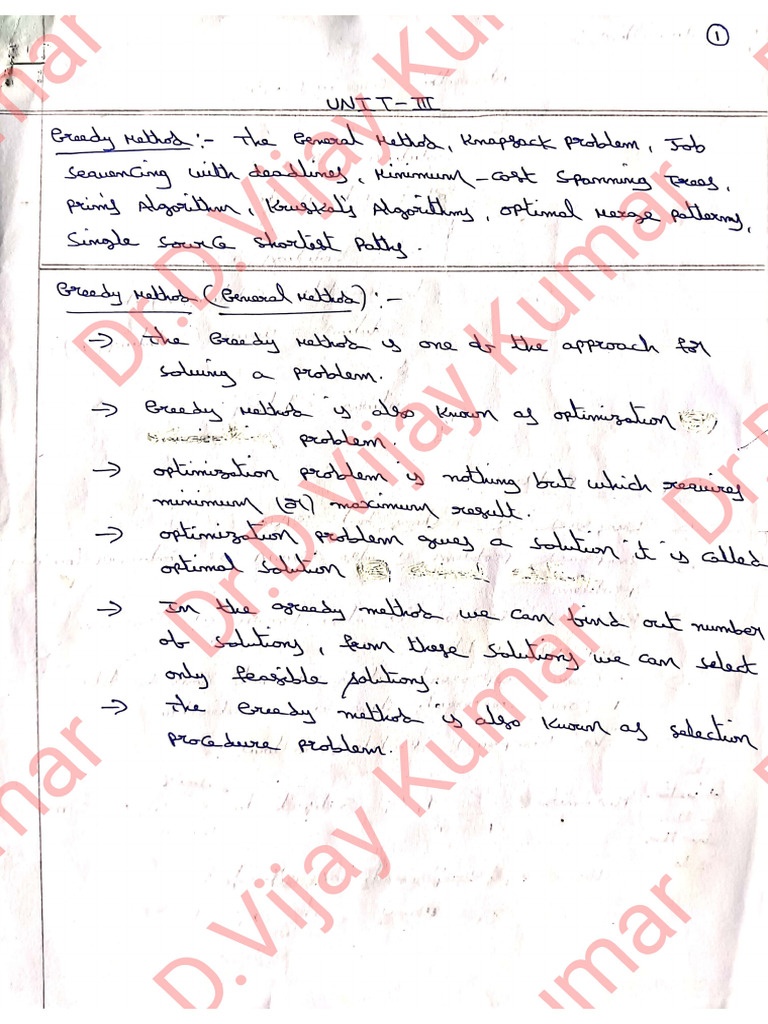 1
UNIT-III
Greedy Method :- The General Method, Knapsack Problem, Job
Sequencing with deadlines, Minimum-cost Spanning Trees,
Prim's Algorithm, Kruskal's Algorithms, optimal Merge Patterns,
Single Source Shortest Paths.
Greedy Method (General Method) :-
→ The Greedy Method is one of the approach for
solving a problem.
→ Greedy Method is also known as optimization
problem.
→ optimization problem is nothing but which requires
minimum (or) maximum result.
→ optimization problem gives a solution it is called
optimal solution
→ In the greedy method we can find out number
of solutions, from these solutions we can select
only feasible solutions.
→ The Greedy method is also known as selection
procedure problem.
Dr.D.Vijay Kumar
Dr.D.Vijay Kumar
D.Vijay Kumar